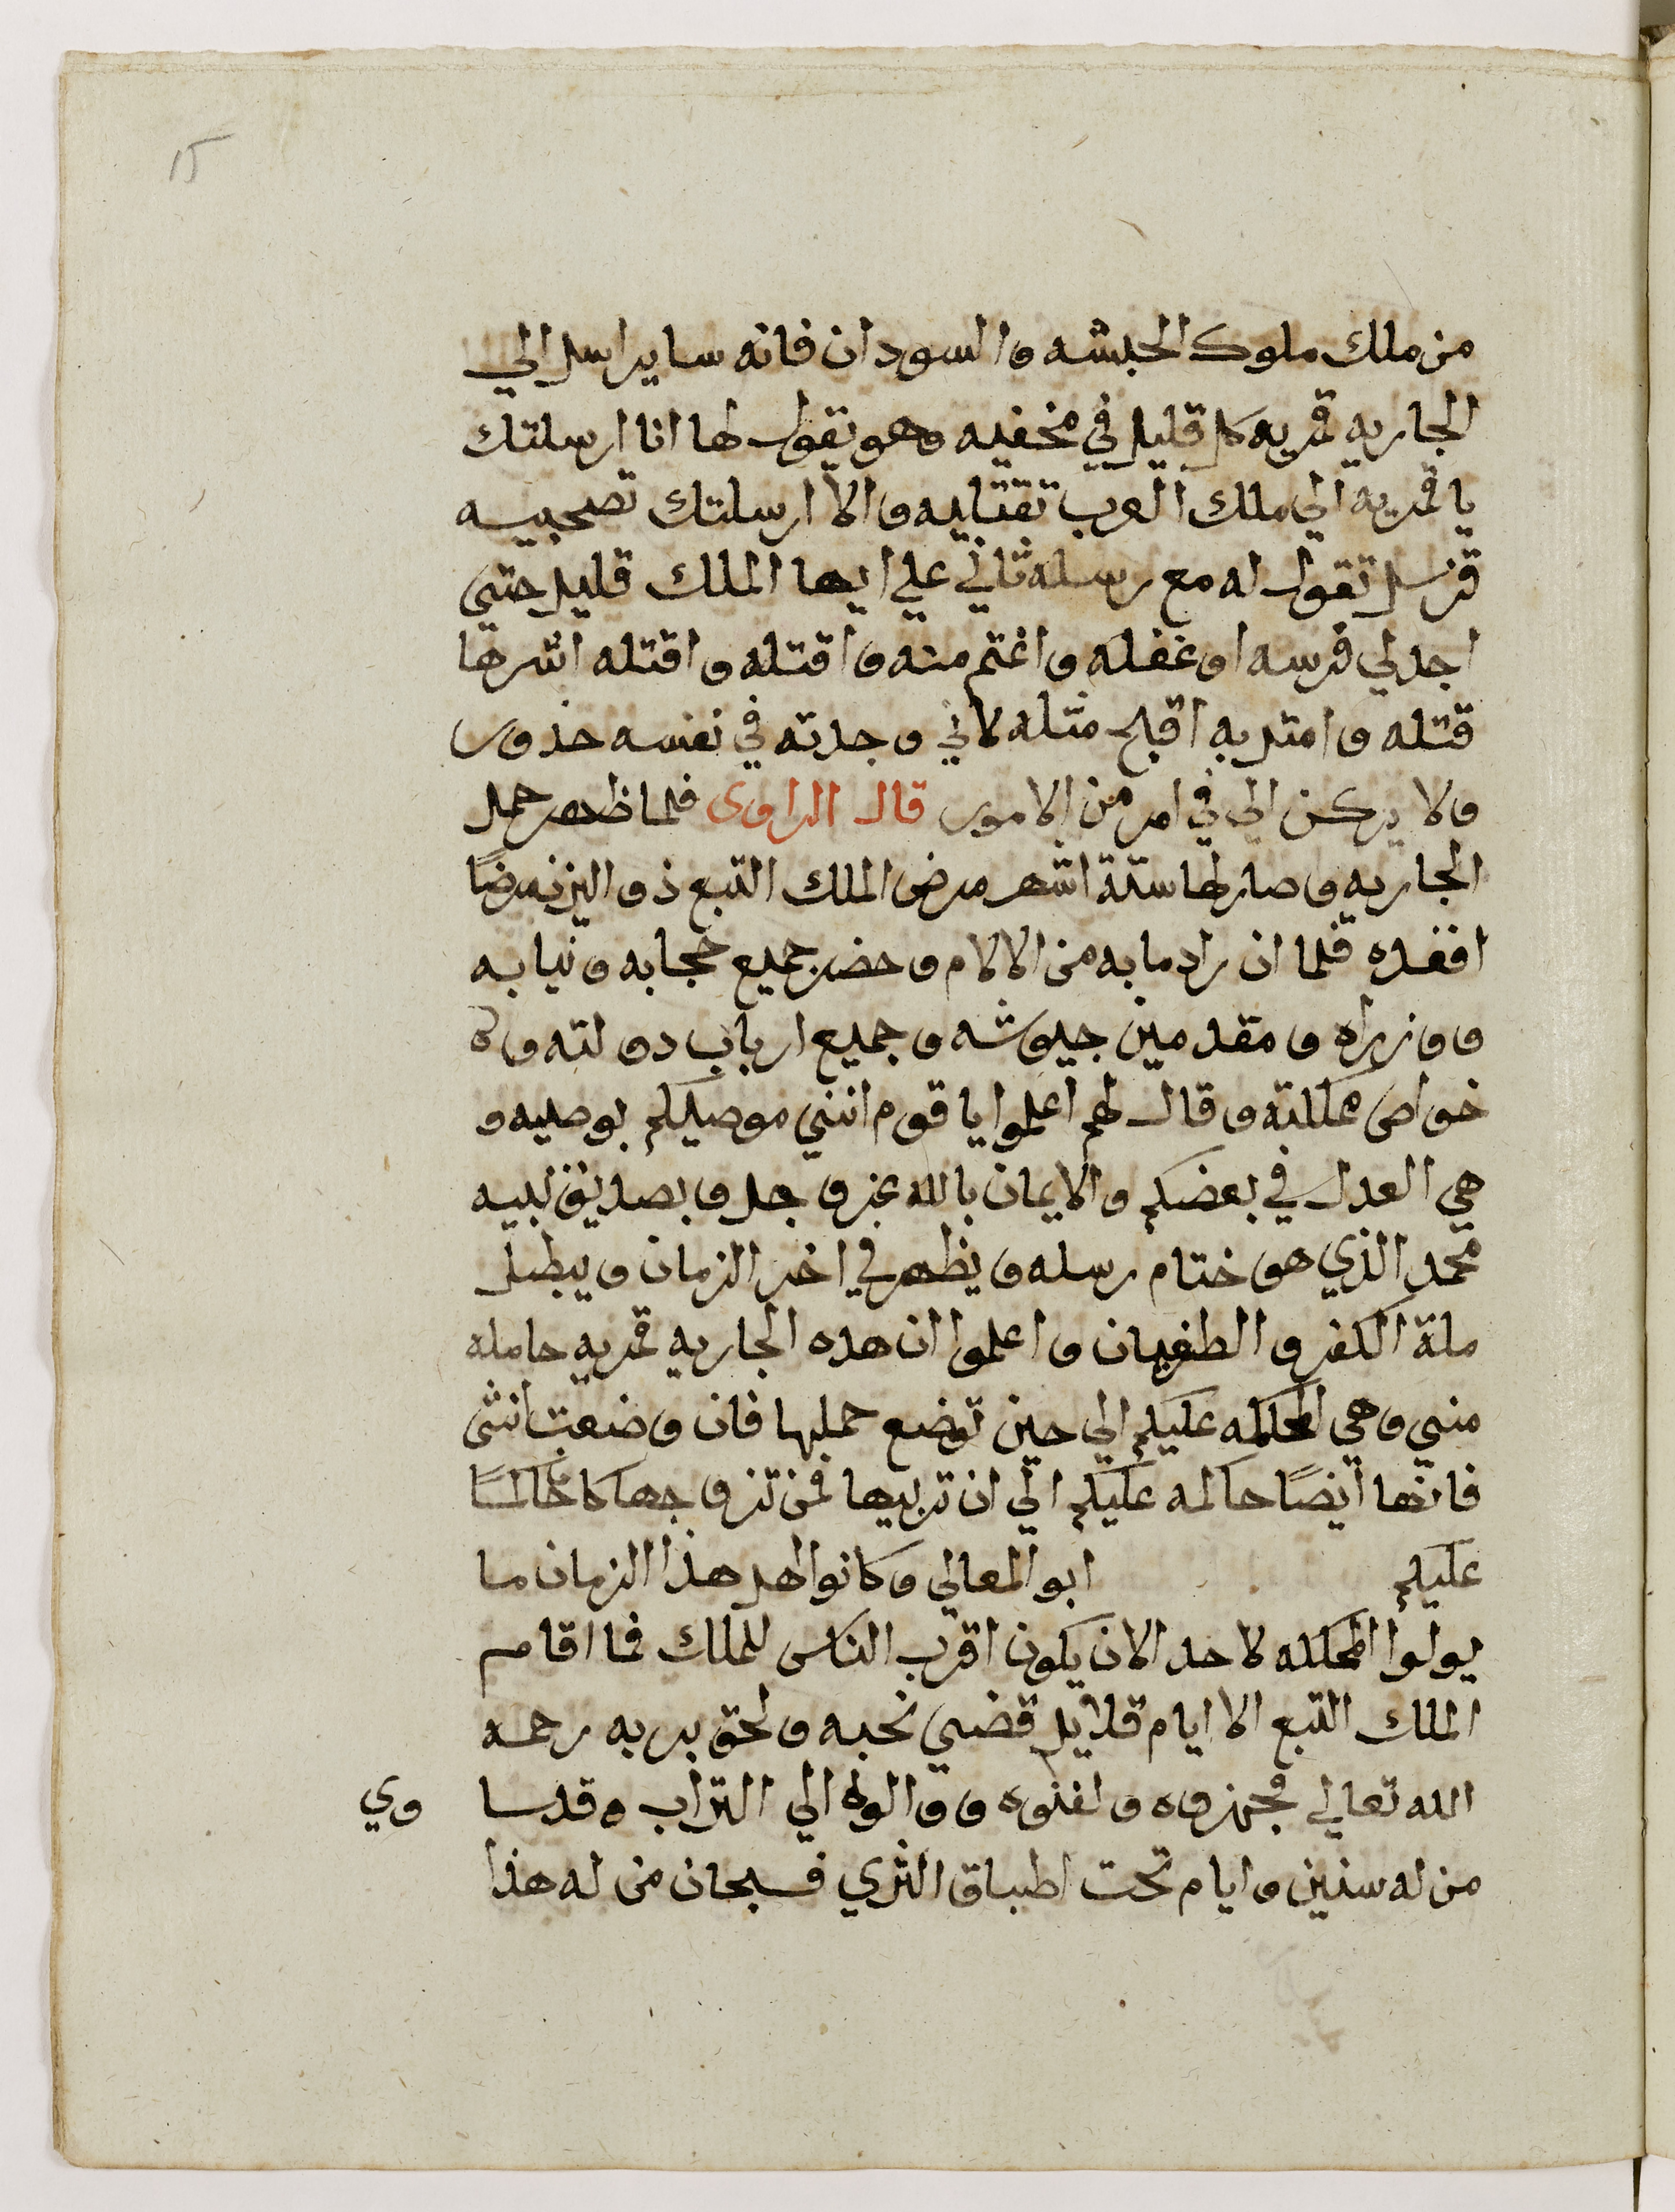 15
من ملك ملوك الحبشه والسودان فانه ساير اسل الي
الجاريه قمريه كل قليل في مخفيه وهو يقول لها انا ارسلتك
يا قمريه الي ملك العرب تقتليه والا ارسلتك تصحبيه
فترسل تقول له مع رسله تاني علي ايها الملك قليل حتي
اجد لي فرسه او غفله واغتم منه واقتله واقتله اشرها
قتله وامتل به اقبح مثله لاني وجدته في نفسه حذور
ولا يركن الي في امر من الامور قال الراوى فلما ظهر حمل
الجاريه وصار لها ستة اشهر مرض الملك التبع ذو اليزن مرضًا
افقده فلما ان زاد ما به من الالام وحضر جميع حجابه ونيابه
ووزراه ومقدمين جيوشه وجميع ارباب دولته و
خواص مملكته وقال لهم اعلموا يا قوم انني موصيكم بوصيه و
هي العدل في بعضكم والايمان بالله عز وجل وبصديق نبيه
محمد الذي هو ختام رسله ويظهر في اخر الزمان ويبطل
ملة الكفر والطغيان واعلموا ان هذه الجاريه قمريه حامله
مني وهي المحكمه عليكم الي حين توضع حملها فان وضعت انثى
فانها ايضًا حاكمه عليكم الي ان تربيها فمن تزوجها كان حاكمًا
عليكم ابو المعالي وكانوا اهل هذا الزمان ما
يولوا المملكه لاحد الا ان يكون اقرب الناس للملك فما اقام
الملك التبع الا ايام قلايل قضي نحبه ولحق بربه رحمه
الله تعالي فجهزوه ودفنوه ووالوه الي التراب وقد ساوي
من له سنين وايام تحت اطباق الثري فسبحان من له هذا